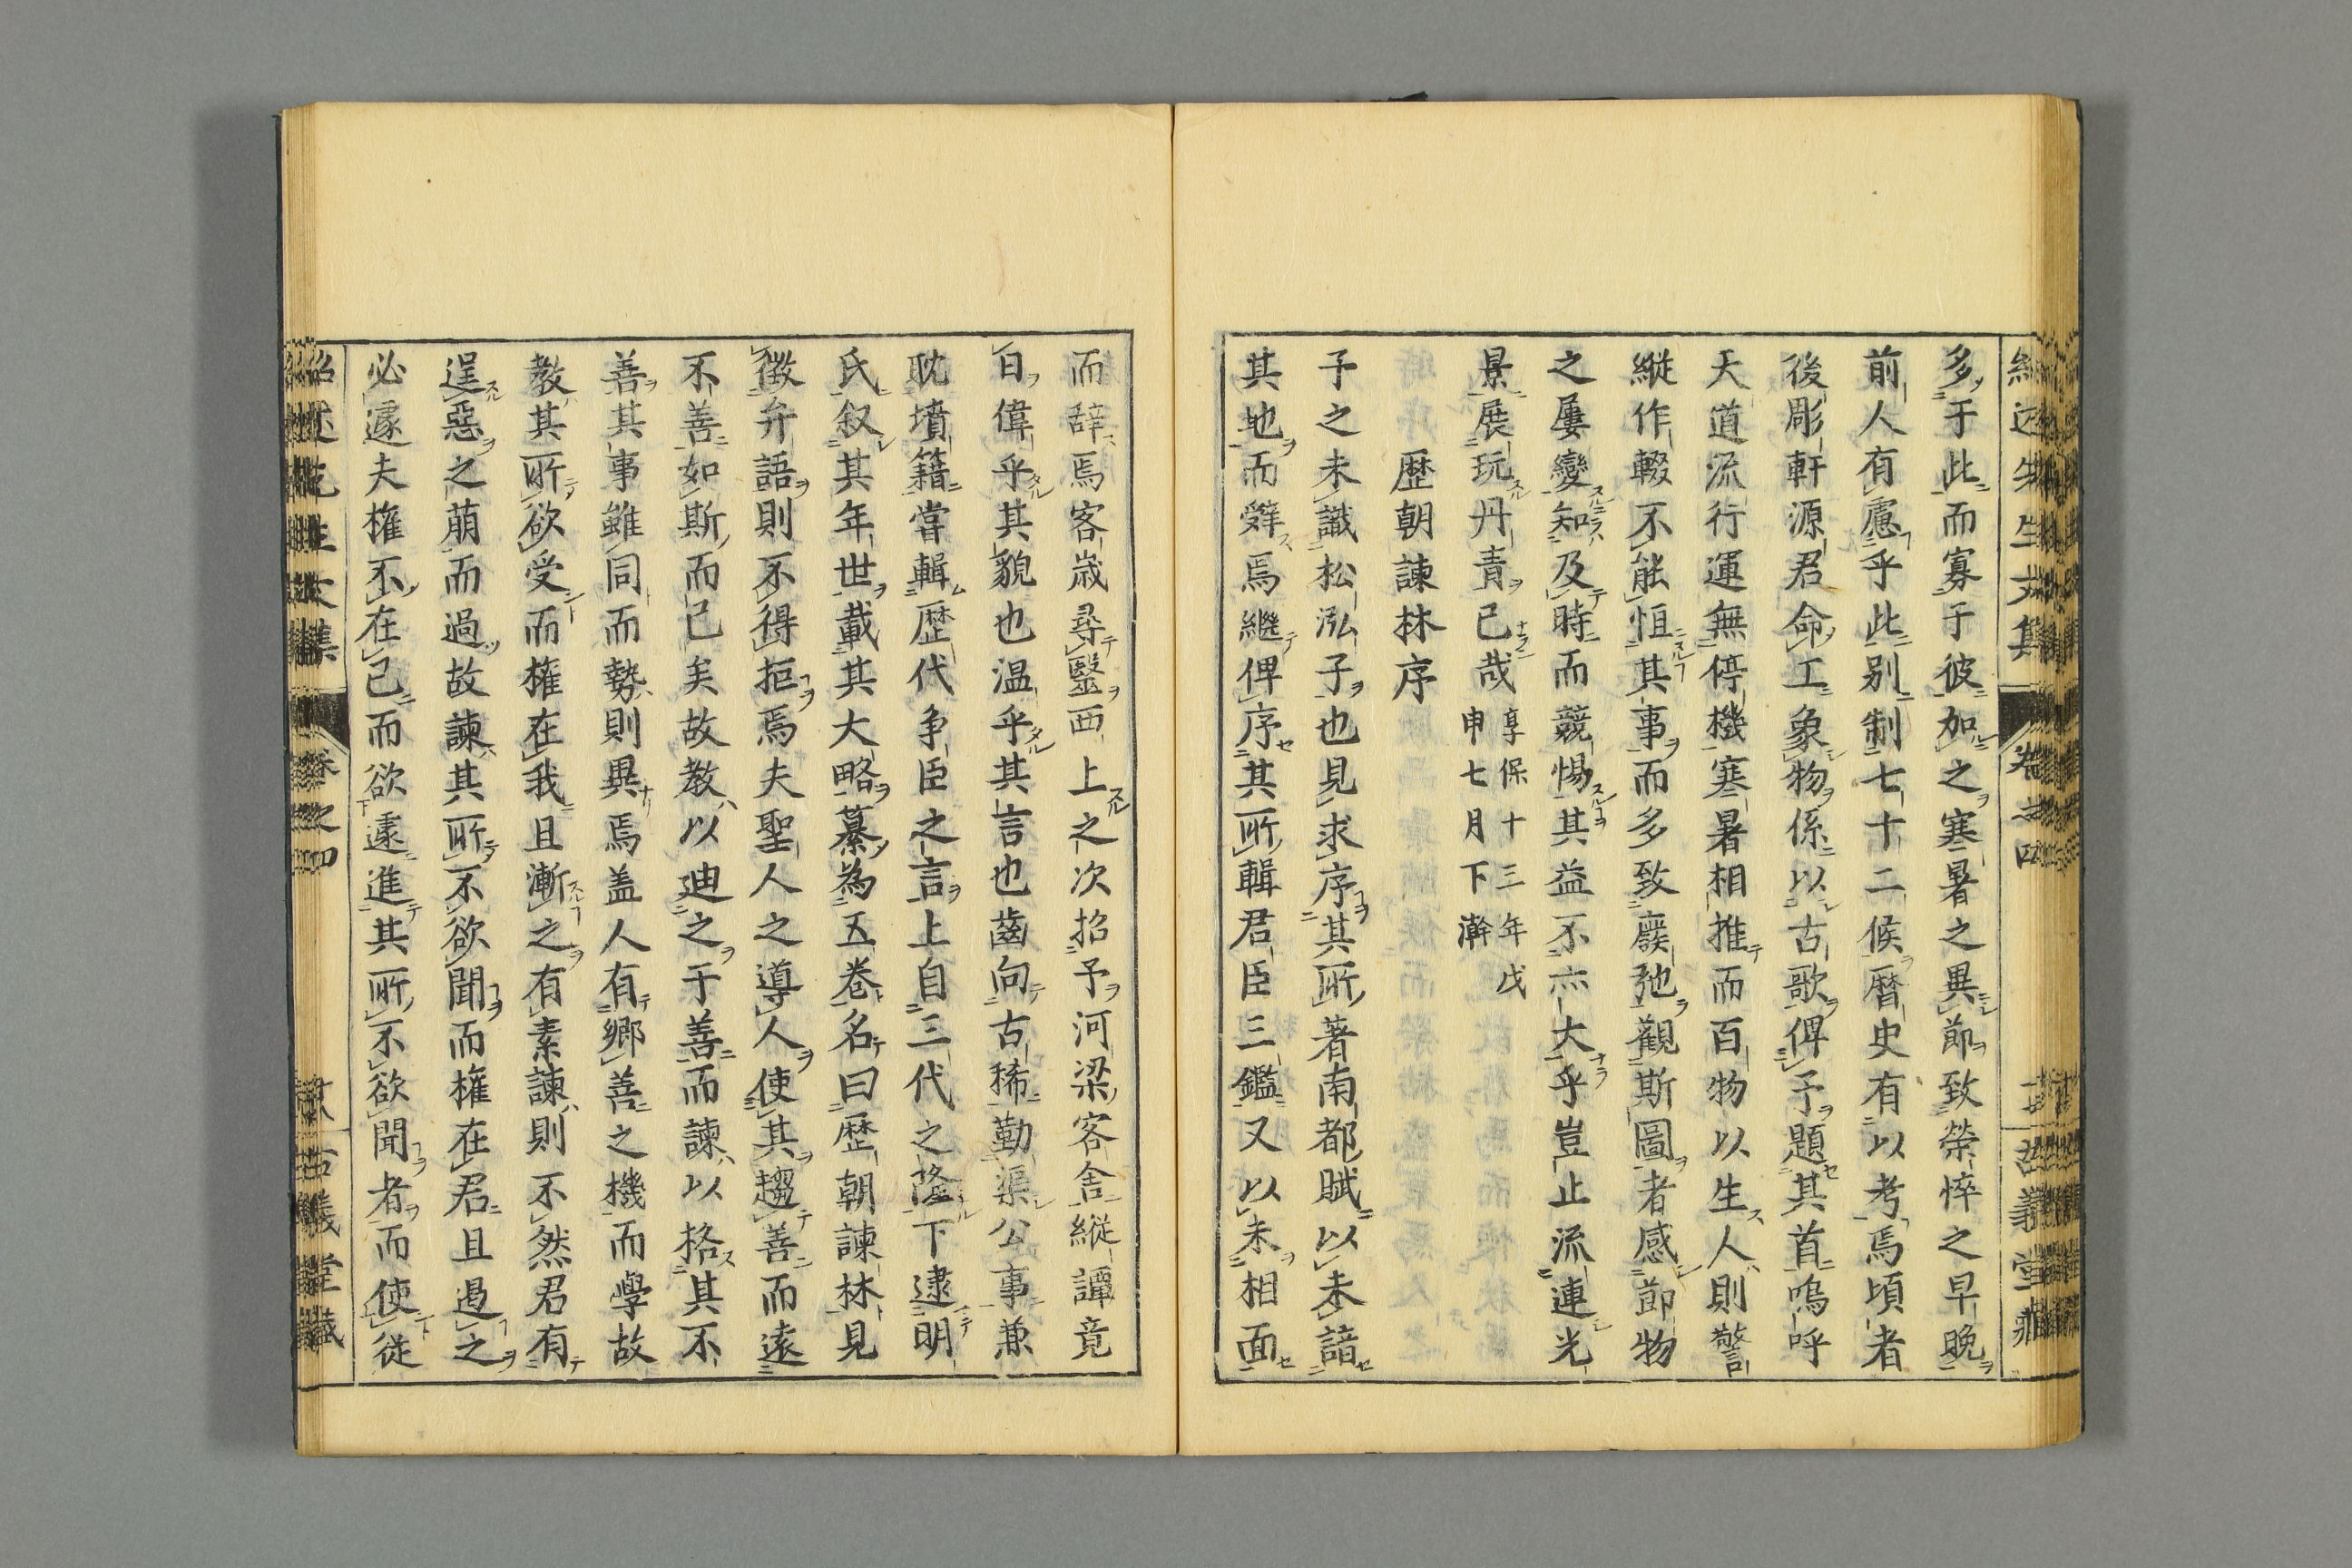 多于此而寡于彼加之寒暑之異節致榮悴之早晩
前人有慮乎此別制七十二候暦史有以考焉頃者
後彫軒源君命工象物係以古歌俾予題其首嗚呼
天道流行運無停機寒暑相推而百物以生人則警
縦作輟不能恒其事而多致廢弛觀斯圖者感節物
之屢變知及時而競惕其益不亦大乎豈止流連光
景展玩丹青已哉享保十三年戊
申七月下澣
歴朝諫林序
予之未識松泓子也見求序其所著南都賦以未諳
其地而辤焉繼俾序其所輯君臣三鑑又以未相面
而辞焉客歳尋毉西上之次招予河梁客舎縦譚竟
日偉乎其貌也温乎其言也齒向古稀勤渠公事兼
耽墳籍嘗輯歴代争臣之言上自三代之隆下逮明
氏叙其年世載其大略纂為五巻名曰歴朝諫林見
徴弁語則不得拒焉夫聖人之導人使其趨善而遠
不善如斯而已矣故教以迪之于善而諫以格其不
善其事雖同而勢則異焉盖人有郷善之機而學故
教其所欲受而權在我且漸之有素諫則不然君有
逞惡之萠而過故諫其所不欲聞而權在君且遏之
必遽夫權不在己而欲遽進其所不欲聞者而使従
紹述先生文集 巻之四 古義堂藏